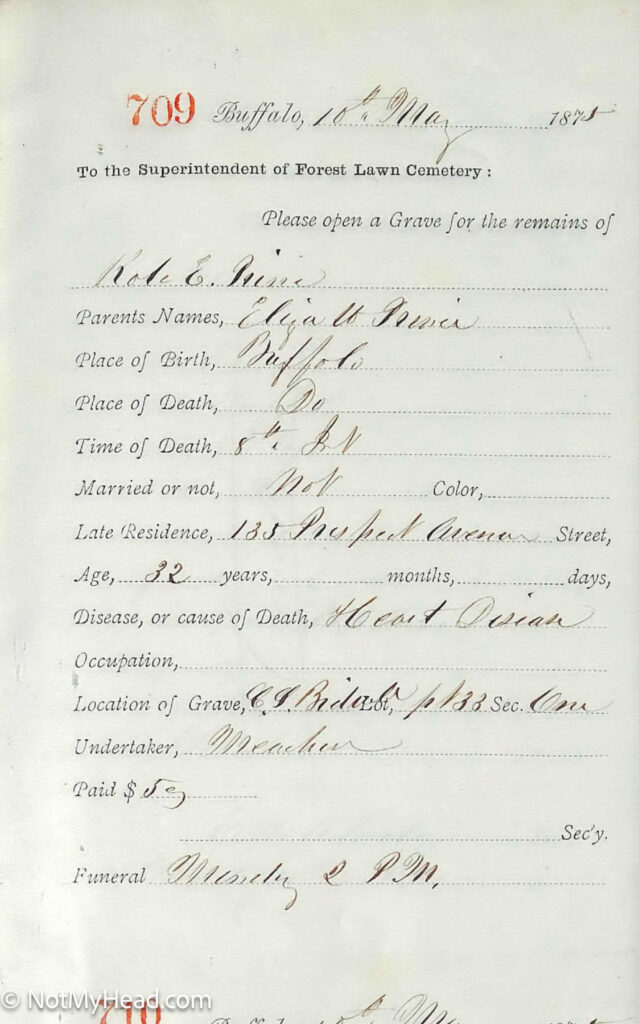 709 Buffalo, 10th May 1875
To the Superintendent of Forest Lawn Cemetery:
Please open a Grave for the remains of
Kate E.
Parents Names, Eliza
Place of Birth, Buffalo
Place of Death, Do
Time of Death, 8th
Married or not, Not Color,
Late Residence, 135 Prospect Avenue Street,
Age, 32 years, months, days,
Disease, or cause of Death, Heart Disease
Occupation,
Location of Grave, Lot, pt 33 Sec. One
Undertaker,
Paid $ 5
Sec'y.
Funeral Monday 2 P M.
© NotMyHead.com
710 Buffalo, 10th May 1875